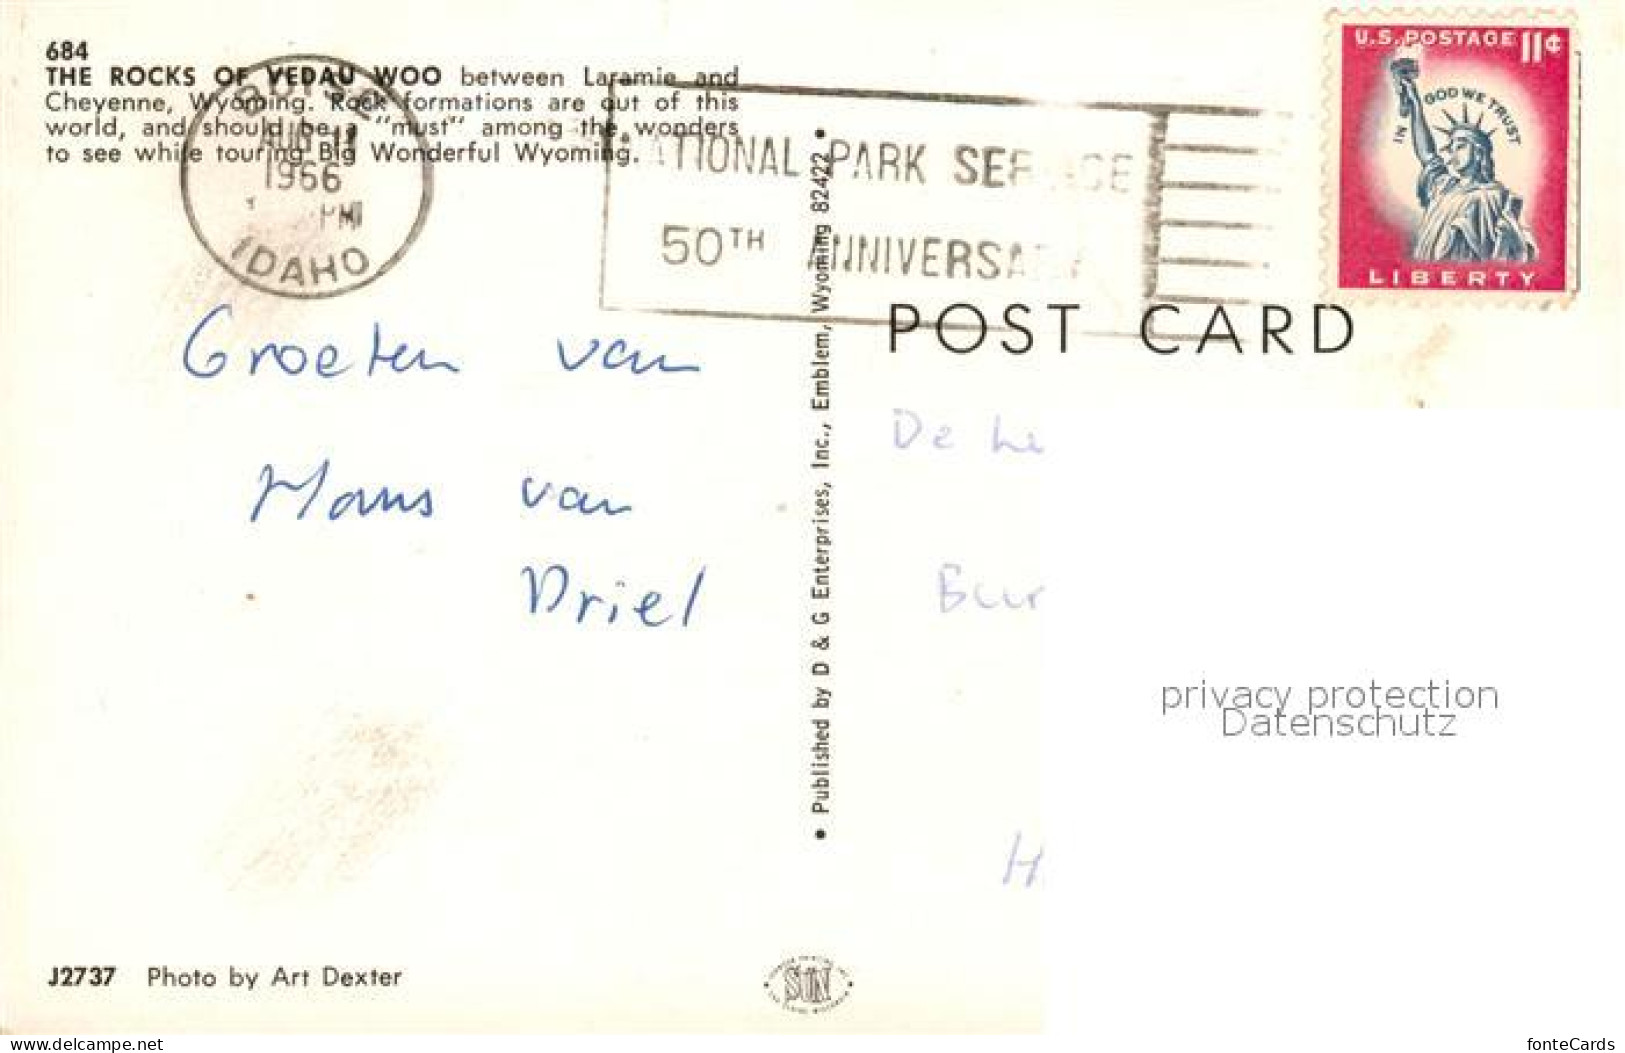 684
THE ROCKS OF VEDAU WOO between Laramie and
Cheyenne, Wyoming. Rock formations are out of this
world, and should be a "must" among the wonders
to see while touring Big Wonderful Wyoming.
BOISE
1966
PM
IDAHO
NATIONAL PARK SERVICE
50TH ANNIVERSARY
U.S. POSTAGE 11¢
IN GOD WE TRUST
LIBERTY
POST CARD
Groeten van
Hans van
Driel
De
• Published by D & G Enterprises, Inc., Emblem, Wyoming 82422 •
privacy protection
Datenschutz
J2737 Photo by Art Dexter
SUN
www.delcampe.net
fonteCards